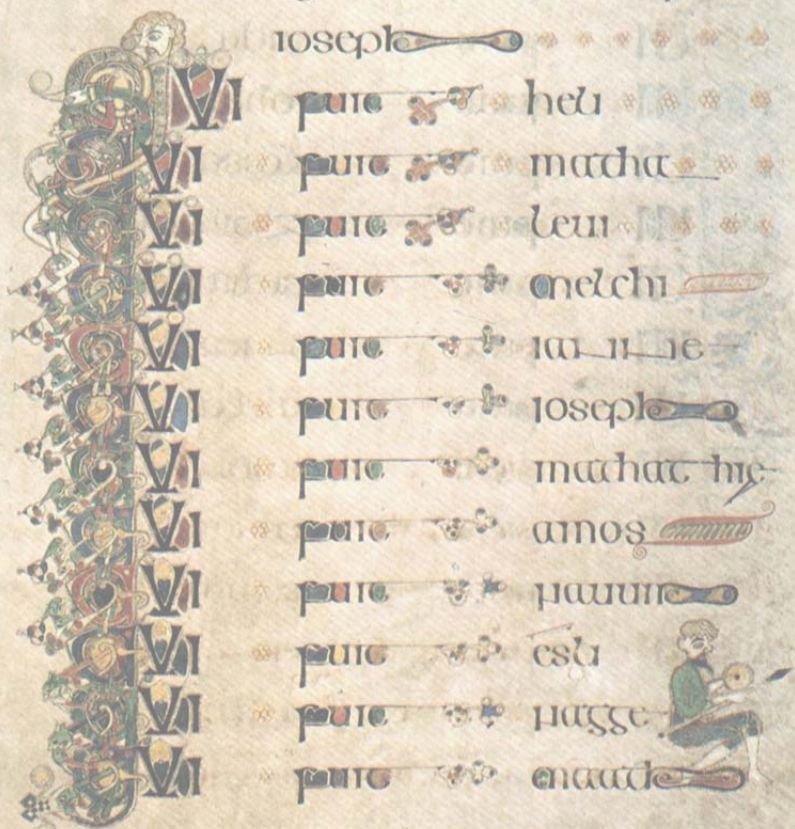 ioseph
QVI fuit heli
QVI fuit matha
QVI fuit levi
QVI fuit melchi
QVI fuit iannae
QVI fuit ioseph
QVI fuit mathathie
QVI fuit amos
QVI fuit nauum
QVI fuit esli
QVI fuit nagge
QVI fuit